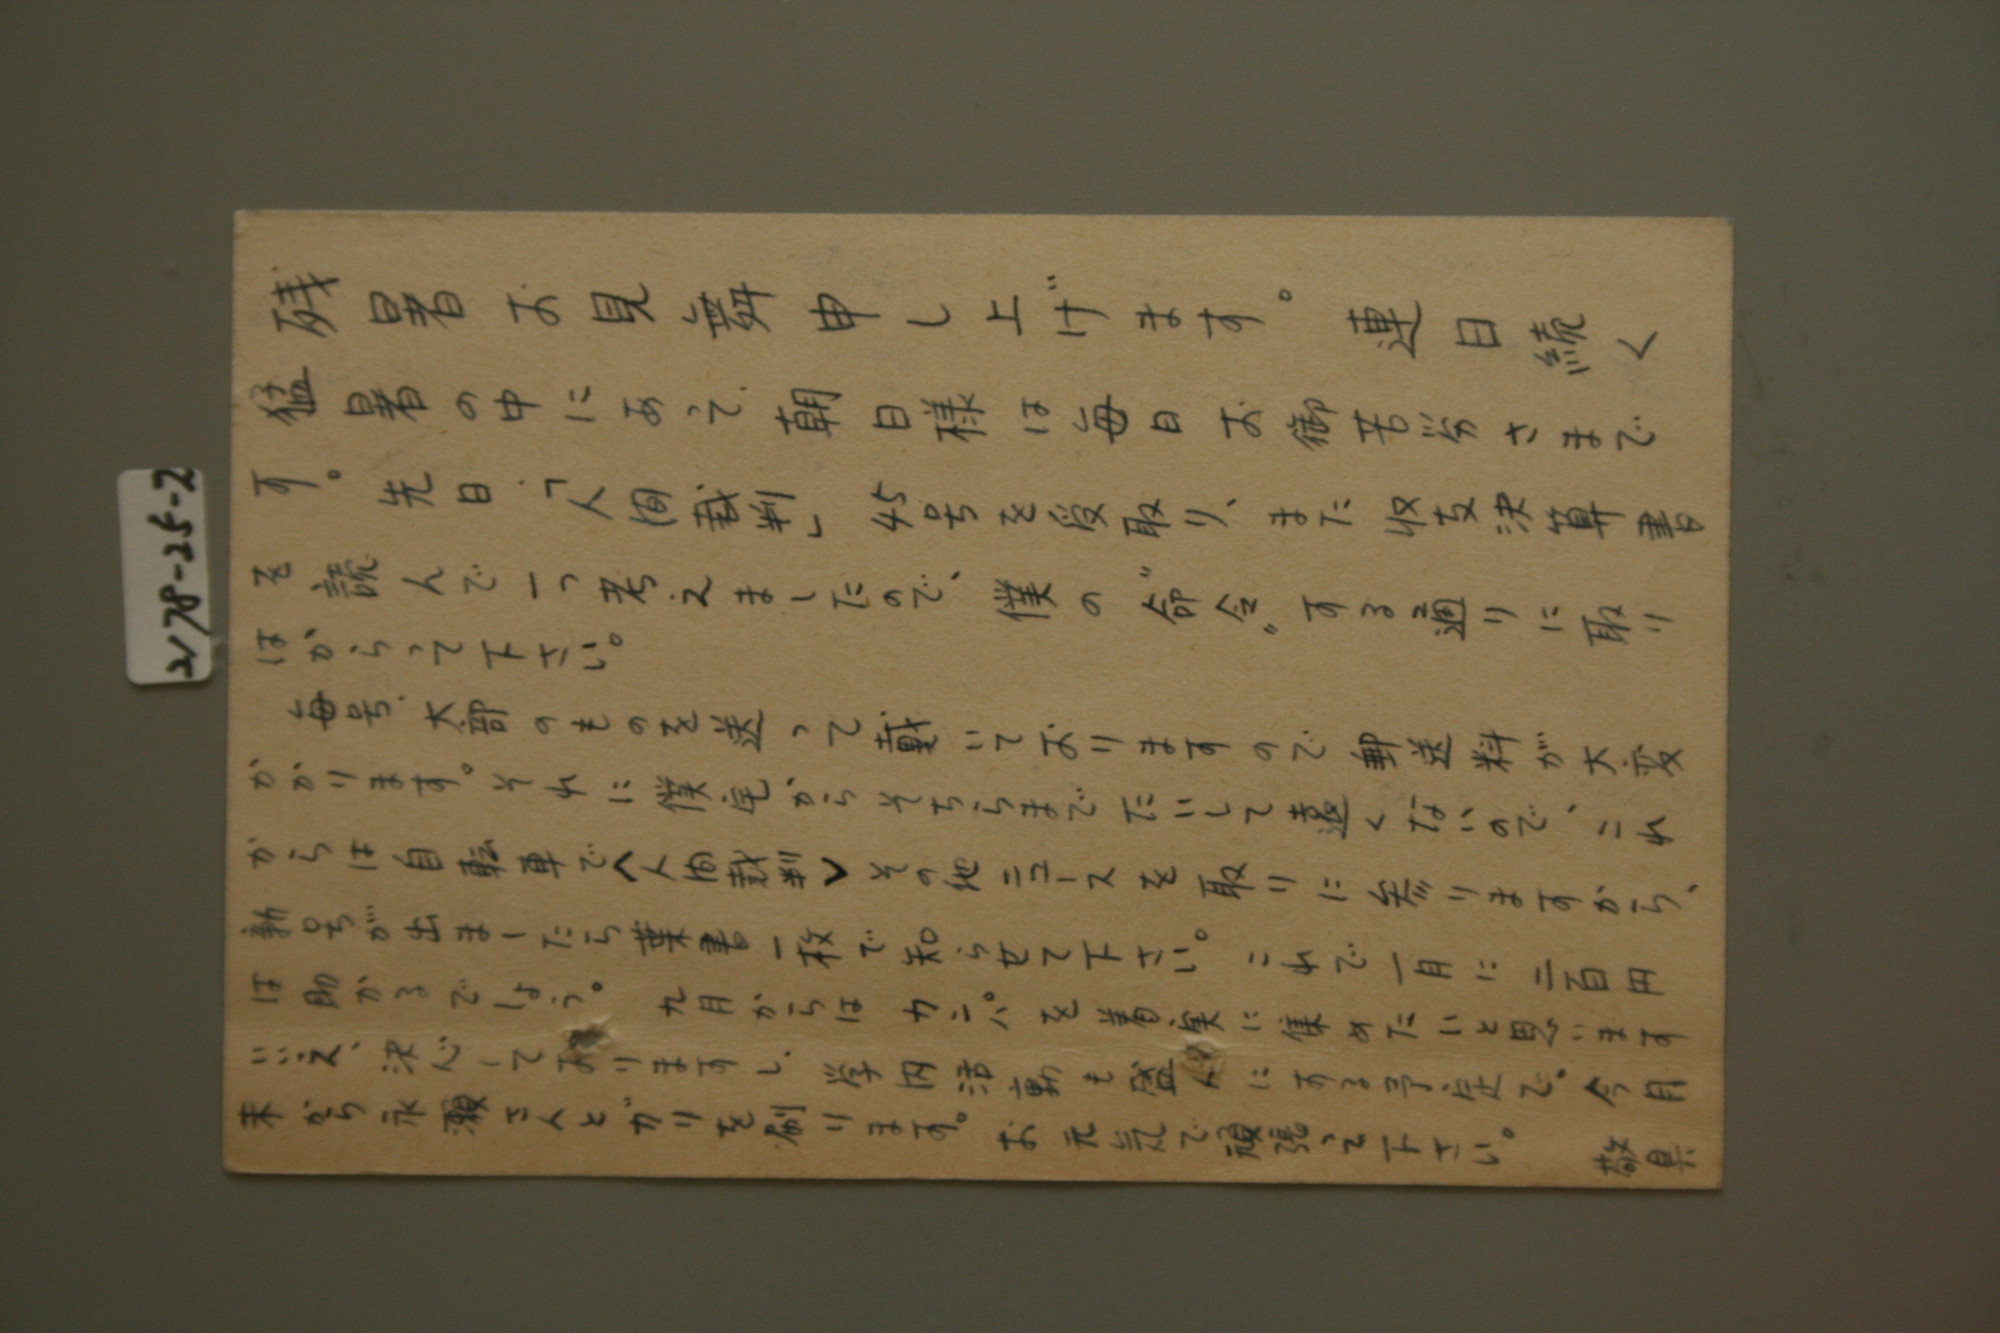 2178-25-2
残暑お見舞申し上げます。連日続く
猛暑の中にあって、朝日様は毎日お御苦労さまで
す。先日「人間裁判」45号を受取り、また収支決算書
を読んで一つ考えましたので、僕の〝命令〟する通りに取り
はからって下さい。
毎号、大部のものを送って戴いておりますので郵送料が大変
かかります。それに僕宅からそちらまでたいして遠くないので、これ
からは自転車で<人間裁判>その他ニュースを取りに参りますから、
新号が出ましたら葉書一枚で知らせて下さい。これで一月に二百円
は助かるでしょう。九月からはカンパを着実に集めたいと思います
いえ、決心しておりますし、学内活動も盛んにする予定で。今月
末から永瀬さんとガリを刷ります。お元気で頑張って下さい。
敬具